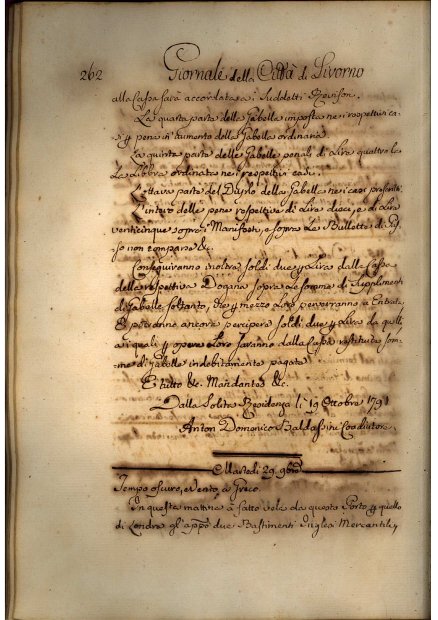 262
Giornale della Città di Livorno
alla Cassa sarà accordata ai Suddetti
La quarta parte della Gabella imposta nei respettivi ca-
si pena in aumento della Gabella ordinaria.
La quinta parte delle Gabelle penali di Lire quattro la
La Libbra ordinata nei respettivi casi.
L'ottava parte del della Gabella nei casi prescritti
L'intero delle pene respettive di Lire dieci, e di Lire
venticinque sopra i Manifesti, e sopra Le Bullette di Pas-
so non comparse &c.
Conseguiranno inoltre soldi due Lira dalla Cassa
della respettiva Dogana sopra le somme di Supplimenti
di Gabelle soltanto, che mezzo Loro perverranno in Entrata
E potranno ancora percipere soldi due Lira da quelli
ai quali opera Loro saranno dalla Cassa restituite som-
me di Gabelle indebitamente pagate
E tutto &c. Mandantes &c.
Dalla Solita Residenza li 19 Ottobre 1791
Anton Domenico Baldassini Coadiutore
Martedi 29 9bre
Tempo oscuro, e Vento a Greco.
In questa mattina à fatto vela da questo Porto quello
di Londra gl'appo due Bastimenti Inglesi Mercantili,